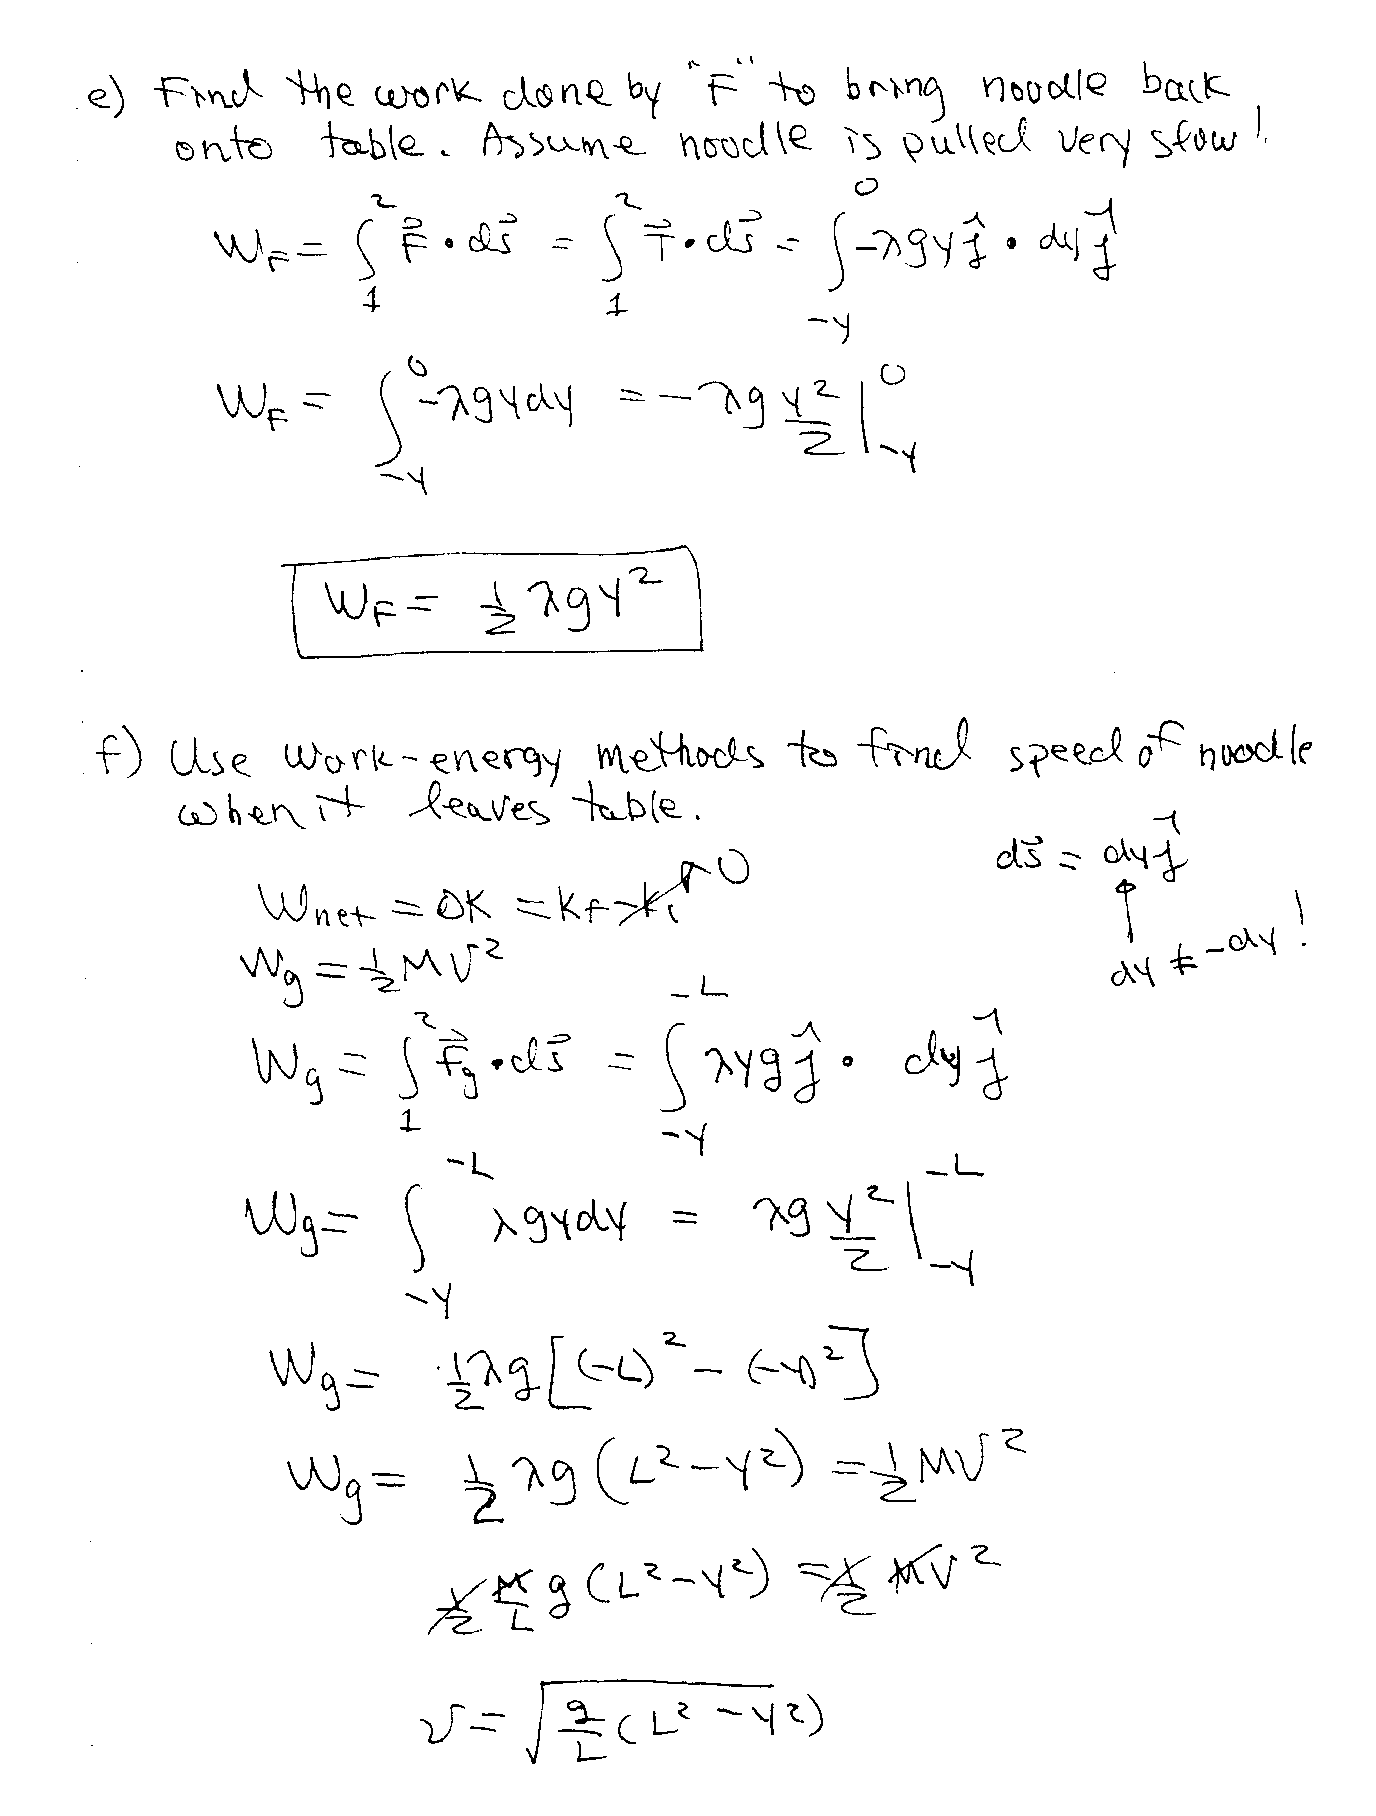 e) Find the work done by "F" to bring noodle back
onto table. Assume noodle is pulled very slow!
W_F = ∫₁² F⃗ · ds⃗ = ∫₁² T⃗ · ds⃗ = ∫_{-y}^{0} -λgy ĵ · dy ĵ
W_F = ∫_{-y}^{0} -λgydy = -λg y²/2 |_{-y}^{0}
W_F = ½ λgy²
f) Use work-energy methods to find speed of noodle
when it leaves table.
ds⃗ = dy ĵ
W_net = ΔK = K_f - K_i → 0
dy ≠ -dy!
W_g = ½ M v²
W_g = ∫₁² F⃗_g · ds⃗ = ∫_{-y}^{-L} λyg ĵ · dy ĵ
W_g = ∫_{-y}^{-L} λgydy = λg y²/2 |_{-y}^{-L}
W_g = ½ λg [(-L)² - (-y)²]
W_g = ½ λg (L² - y²) = ½ M v²
½ M/L g (L² - y²) = ½ M v²
v = √(g/L (L² - y²))